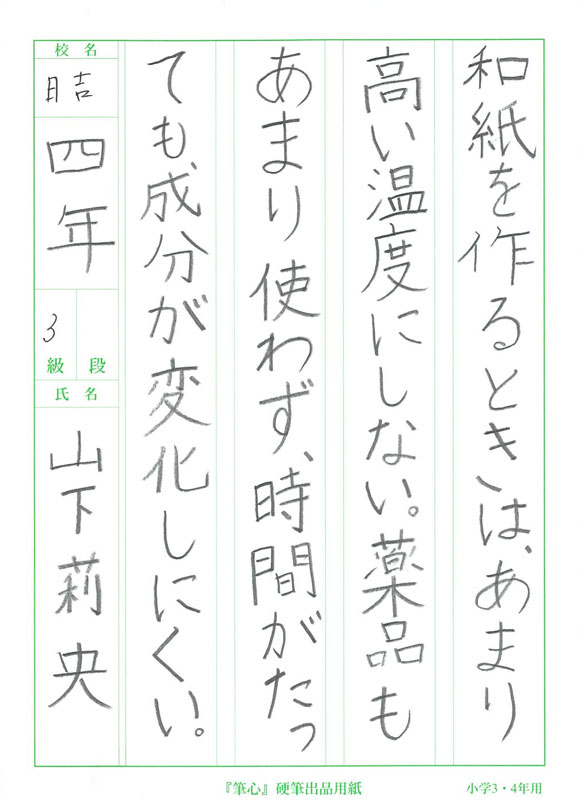 和紙を作るときは、あまり
高い温度にしない。薬品も
あまり使わず、時間がたっ
ても、成分が変化しにくい。
校名
日吉
四年
3
級 段
氏名
山下莉央
『筆心』硬筆出品用紙
小学3・4年用